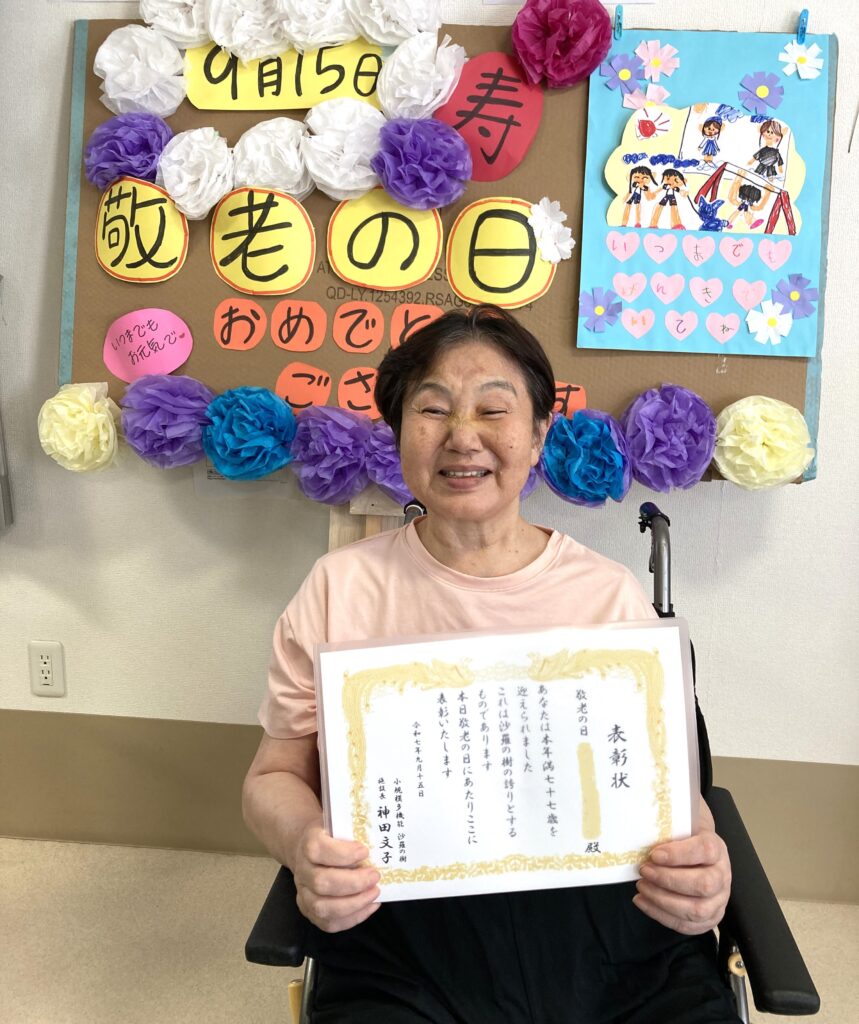 9月15日
寿
敬老の日
おめでと
ござ
す
いつまでも
お元気で
QD-LY.1254392.RSAG
いつまでも
げんき
いてね
表彰状
敬老の日
殿
あなたは本年満七十七歳を
迎えられました
これは沙羅の樹の誇りとする
ものであります
本日敬老の日にあたりここに
表彰いたします
令和七年九月十五日
小規模多機能 沙羅の樹
施設長 神田文子